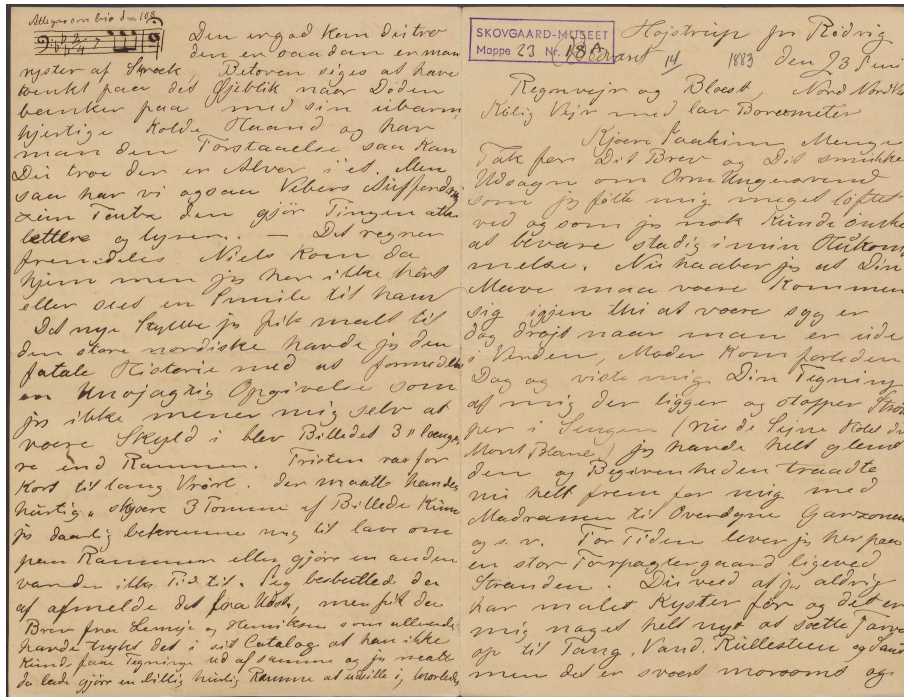 Allegro con brio d = 108
Den er god kan Du tro
den er saadan er man
ryster af Skræk, Betoven siges at have
tænkt paa det Øjeblik naar Døden
banker paa med sin ubarm
hjertige kolde Haand og har
man den Forstaaelse saa kan
Du troe der er Alvor i et. Men
saa har vi ogsaa Vibers
den gjør Tingen
lettere og lysere. — Det regner
fremdeles Niels kom da
hjem men jeg har ikke hørt
eller seet en Smule til ham
Det nye Stykke jeg fik malt til
den store nordiske havde jeg den
fatale Historie med at formedelst
en Unøjagtig Opgivelse som
jeg ikke mener mig selv at
være Skyld i blev Billedet 3" længe
re end Rammen. Fristen var for
kort til lang Vrøvl. der maatte handles
hurtig, skjære 3 Tommer af Billede kunde
jeg daarlig bekvemme mig til lave om
paa Rammen eller gjøre en anden
var der ikke Tid til. Jeg besluttede der
af afmelde det fra Udst, men fik da
Brev fra og Henriksen som allerede
havde trykt det i sit Catalog at han ikke
kunde faae Tegninge ud af samme og jeg maatte
da lade gjøre en billig hurtig Ramme at udstille i,
SKOVGAARD-MUSEET
Mappe 23 Nr. 18A
Højstrup pr Rødvig
14 1883 den 23 Juni
Regnvejr og Blæst, Nord Nord
Kølig Vejr med lav Barometer
Kjære Joakim Mange
Tak for Dit Brev og Dit smukke
Udsagn om Orm Ungersvend
som jeg følte mig meget løftet
ved og som jeg nok kunde ønske
at bevare stadig i min Hukom
melse. Nu haaber jeg at Din
Mave maa være kommen
sig igjen thi at være syg er
dog drøjt naar man er ude
i Verden, Moder kom forleden
Dag og viste mig Din Tegning
af mig der ligger og stopper Strøm
per i Sengen
Mont Blanc) jeg havde helt glemt
den og Begivenheden traadte
nu helt frem for mig med
Madrassen til Overdyne Garzonen
og s.v. For Tiden lever jeg her paa
en stor Forpagtergaard ligeved
Stranden. Du veed at jeg aldrig
har malet Kyster før og det er
mig noget helt nyt at sætte Farve
op til Tang, Vand, Rullesteen og Sand
men det er svært morsomt og